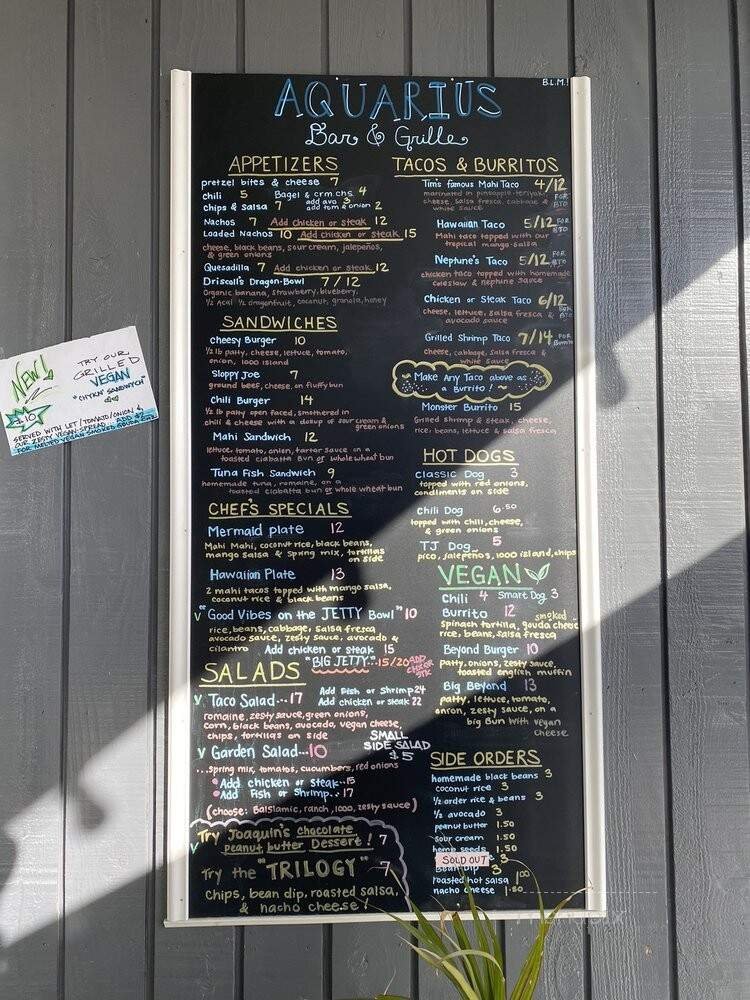 B.L.M.!
AQUARIUS
Bar & Grille
APPETIZERS
pretzel bites & cheese 7
chili 5 Bagel & crm.chs. 4
add avo 3
chips & salsa 7 add tom & onion 2
Nachos 7 Add chicken or steak 12
Loaded Nachos 10 Add chicken or steak 15
cheese, black beans, sour cream, jalepeños,
& green onions
Quesadilla 7 Add chicken or steak 12
Driscoll's Dragon-Bowl 7/12
Organic banana, strawberry, blueberry,
½ Acai ½ dragonfruit, coconut, granola, honey
SANDWICHES
cheesy Burger 10
½ lb patty, cheese, lettuce, tomato,
onion, 1000 island
Sloppy Joe 7
ground beef, cheese, on fluffy bun
Chili Burger 14
½ lb patty open faced, smothered in
chili & cheese with a dollup of sour cream &
green onions
Mahi Sandwich 12
lettuce, tomato, onion, tartar sauce on a
toasted ciabatta bun or whole wheat bun
Tuna Fish Sandwich 9
homemade tuna, romaine, on a
toasted ciabatta bun or whole wheat bun
CHEF'S SPECIALS
Mermaid plate 12
Mahi Mahi, coconut rice, black beans,
mango salsa & spring mix, tortillas
on side
Hawaiian Plate 13
2 mahi tacos topped with mango salsa,
coconut rice & black beans
V "Good Vibes on the JETTY Bowl" 10
rice, beans, cabbage, salsa fresca
avocado sauce, zesty sauce, avocado &
cilantro Add chicken or steak 15
"BIG JETTY"...15/20 ADD
CHX OR
STK
SALADS
V Taco Salad...17 Add Fish or Shrimp 24
Add chicken or steak 22
romaine, zesty sauce, green onions,
corn, black beans, avocado, vegan cheese,
chips, tortillas on side
V Garden Salad...10
SMALL
SIDE SALAD
$5
...spring mix, tomatos, cucumbers, red onions
Add chicken or steak..15
Add Fish or Shrimp..17
(choose: Balsiamic, ranch, 1000, zesty sauce)
V Try Joaquin's chocolate
peanut butter Dessert! 7
Try the "TRILOGY" 7
chips, bean dip, roasted salsa,
& nacho cheese!
TACOS & BURRITOS
Tim's famous Mahi Taco 4/12
marinated in pineapple-teriyaki,
cheese, salsa fresca, cabbage &
white sauce
Hawaiian Taco 5/12
Mahi taco topped with our
tropical mango salsa
Neptune's Taco 5/12
chicken taco topped with homemade
coleslaw & neptune sauce
Chicken or Steak Taco 6/12
cheese, lettuce, salsa fresca &
avocado sauce
Grilled Shrimp Taco 7/14
cheese, cabbage, salsa fresca &
white sauce
Make Any Taco above as
a Burrito!
Monster Burrito 15
Grilled shrimp & steak, cheese,
rice, beans, lettuce & salsa fresca
HOT DOGS
classic Dog 3
topped with red onions,
condiments on side
Chili Dog 6.50
topped with chili, cheese,
& green onions
TJ Dog 5
pico, jalepeños, 1000 island, chips
VEGAN
Chili 4 Smart Dog 3
Burrito 12 smoked
spinach tortilla, gouda cheese
rice, beans, salsa fresca
Beyond Burger 10
patty, onions, zesty sauce,
toasted english muffin
Big Beyond 13
patty, lettuce, tomato,
onion, zesty sauce, on a
big Bun with vegan
cheese
SIDE ORDERS
homemade black beans 3
coconut rice 3
½ order rice & beans 3
½ avocado 3
peanut butter 1.50
sour cream 1.50
hemp seeds 1.50
SOLD OUT 3
Bean Dip 3
roasted hot salsa 1.00
nacho cheese 1.50
NEW!
$10
TRY OUR
GRILLED
VEGAN
"CHYKN" SANDWYCH"
SERVED WITH LET/TOMATO/ONION &
OUR ZESTY VEGAN SPREAD ADD $2
FOR MELTED VEGAN SMOKED GOUDA CHZ